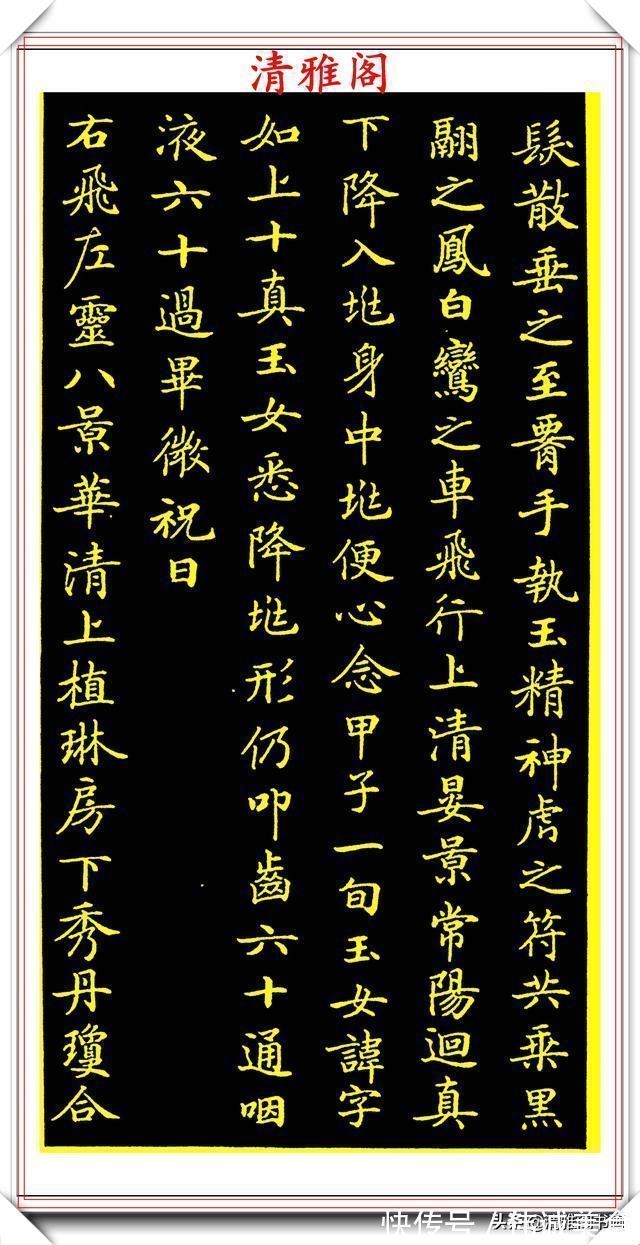 清雅阁
髮散垂之至臀手執玉精神虎之符共乘黑
翮之鳳白鸞之車飛行上清晏景常陽迴真
下降入㘴身中㘴便心念甲子一旬玉女諱字
如上十真玉女悉降㘴形仍叩齒六十通咽
液六十過畢微祝曰
右飛左靈八景華清上植琳房下秀丹瓊合
快传号